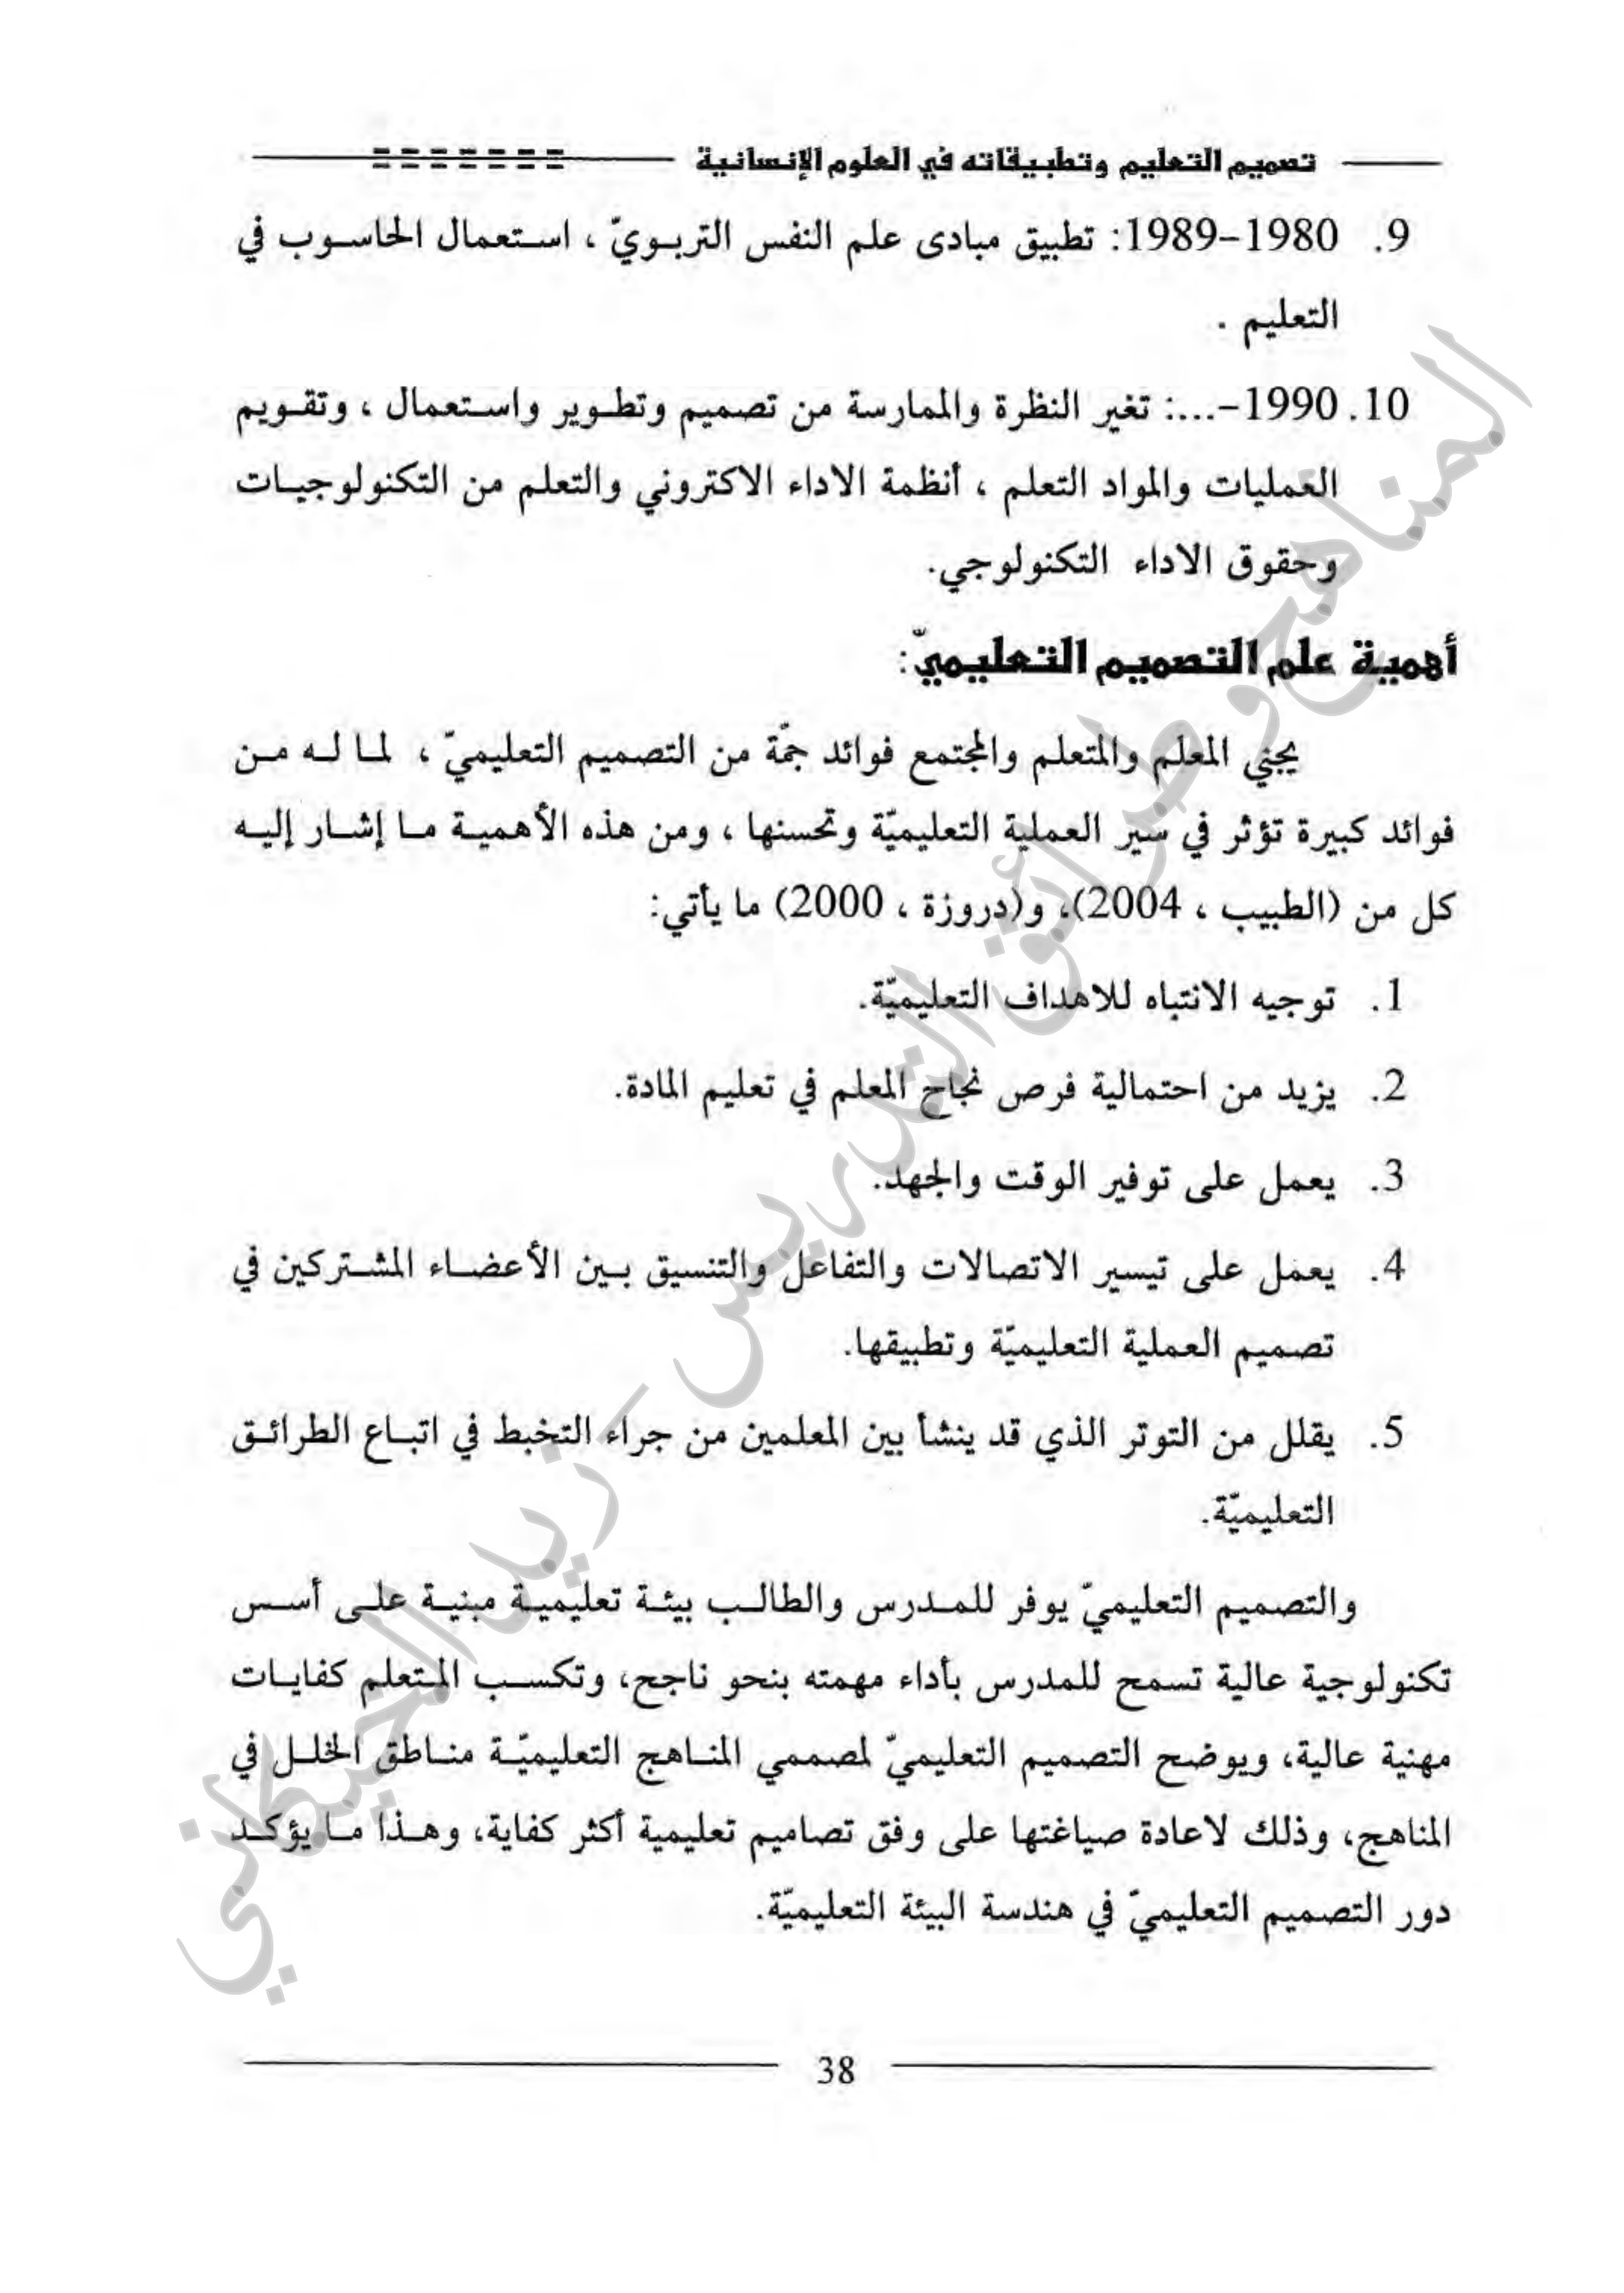 تصميم التعليم وتطبيقاته في العلوم الإنسانية
9. 1980-1989: تطبيق مبادى علم النفس التربويّ ، استعمال الحاسوب في
التعليم .
10. 1990-...: تغير النظرة والممارسة من تصميم وتطوير واستعمال ، وتقويم
العمليات والمواد التعلم ، أنظمة الاداء الاكتروني والتعلم من التكنولوجيات
وحقوق الاداء التكنولوجي.
أهمية علم التصميم التعليميّ:
يجني المعلم والمتعلم والمجتمع فوائد جمّة من التصميم التعليميّ ، لما له من
فوائد كبيرة تؤثر في سير العملية التعليميّة وتحسنها ، ومن هذه الأهمية ما إشار إليه
كل من (الطبيب ، 2004)، و(دروزة ، 2000) ما يأتي:
1. توجيه الانتباه للاهداف التعليميّة.
2. يزيد من احتمالية فرص نجاح المعلم في تعليم المادة.
3. يعمل على توفير الوقت والجهد.
4. يعمل على تيسير الاتصالات والتفاعل والتنسيق بين الأعضاء المشتركين في
تصميم العملية التعليميّة وتطبيقها.
5. يقلل من التوتر الذي قد ينشأ بين المعلمين من جراء التخبط في اتباع الطرائق
التعليميّة.
والتصميم التعليميّ يوفر للمدرس والطالب بيئة تعليمية مبنية على أسس
تكنولوجية عالية تسمح للمدرس بأداء مهمته بنحو ناجح، وتكسب المتعلم كفايات
مهنية عالية، ويوضح التصميم التعليميّ لمصممي المناهج التعليميّة مناطق الخلل في
المناهج، وذلك لاعادة صياغتها على وفق تصاميم تعليمية أكثر كفاية، وهذا ما يؤكد
دور التصميم التعليميّ في هندسة البيئة التعليميّة.
38
المناهج وطرائق التدريس - زيد الخيكاني